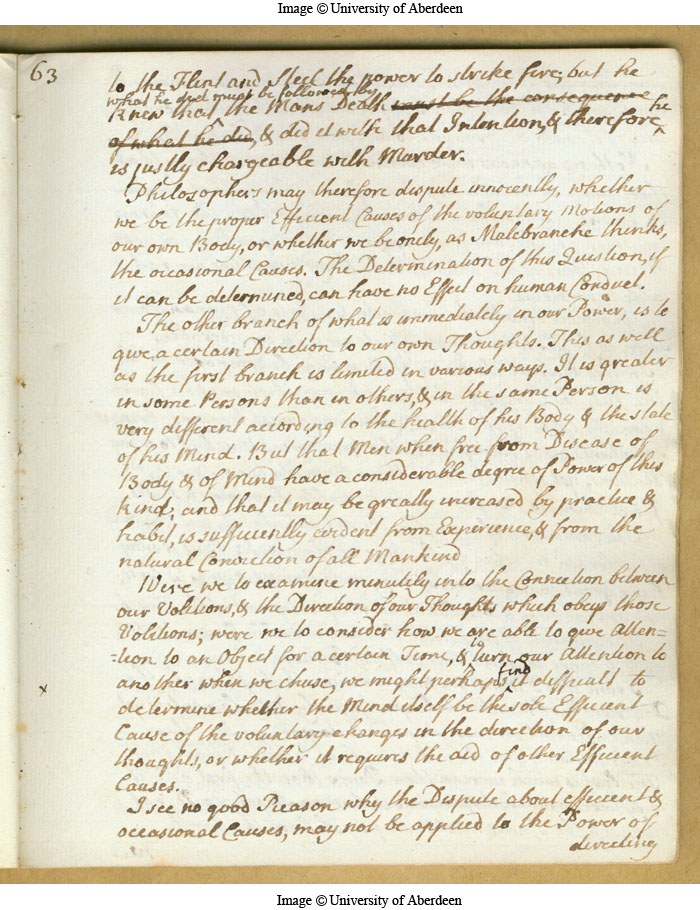 Image © University of Aberdeen
63
to the Flint and Steel the power to strike fire, but he
what he did must be followed by
knew that the Mans Death must be the consequence he
of what he did, & did it with that Intention, & therefore
is justly chargeable with Murder.
Philosophers may therefore dispute innocently, whether
we be the proper Efficient Causes of the voluntary Motions of
our own Body, or whether we be onely, as Malebranche thinks,
the occasional Causes. The Determination of this Question, if
it can be determined, can have no Effect on human Conduct.
The other branch of what is immediately in our Power, is to
give a certain Direction to our own Thoughts. This as well
as the first branch is limited in various ways. It is greater
in some Persons than in others, & in the same Person is
very different according to the health of his Body & the state
of his Mind. But that Men when free from Disease of
Body & of Mind have a considerable degree of Power of this
kind, and that it may be greatly increased by practice &
habit, is sufficiently evident from Experience, & from the
natural Conviction of all Mankind
Were we to examine minutely into the Connection between
our Volitions, & the Direction of our Thoughts which obeys those
Volitions; were we to consider how we are able to give Atten=
=tion to an Object for a certain Time, & to turn our Attention to
another when we chuse, we might perhaps find it difficult to
x
determine whether the Mind itself be the sole Efficient
Cause of the voluntary changes in the direction of our
thoughts, or whether it requires the aid of other Efficient
Causes.
I see no good Reason why the Dispute about efficient &
occasional Causes, may not be applied to the Power of
directing
Image © University of Aberdeen